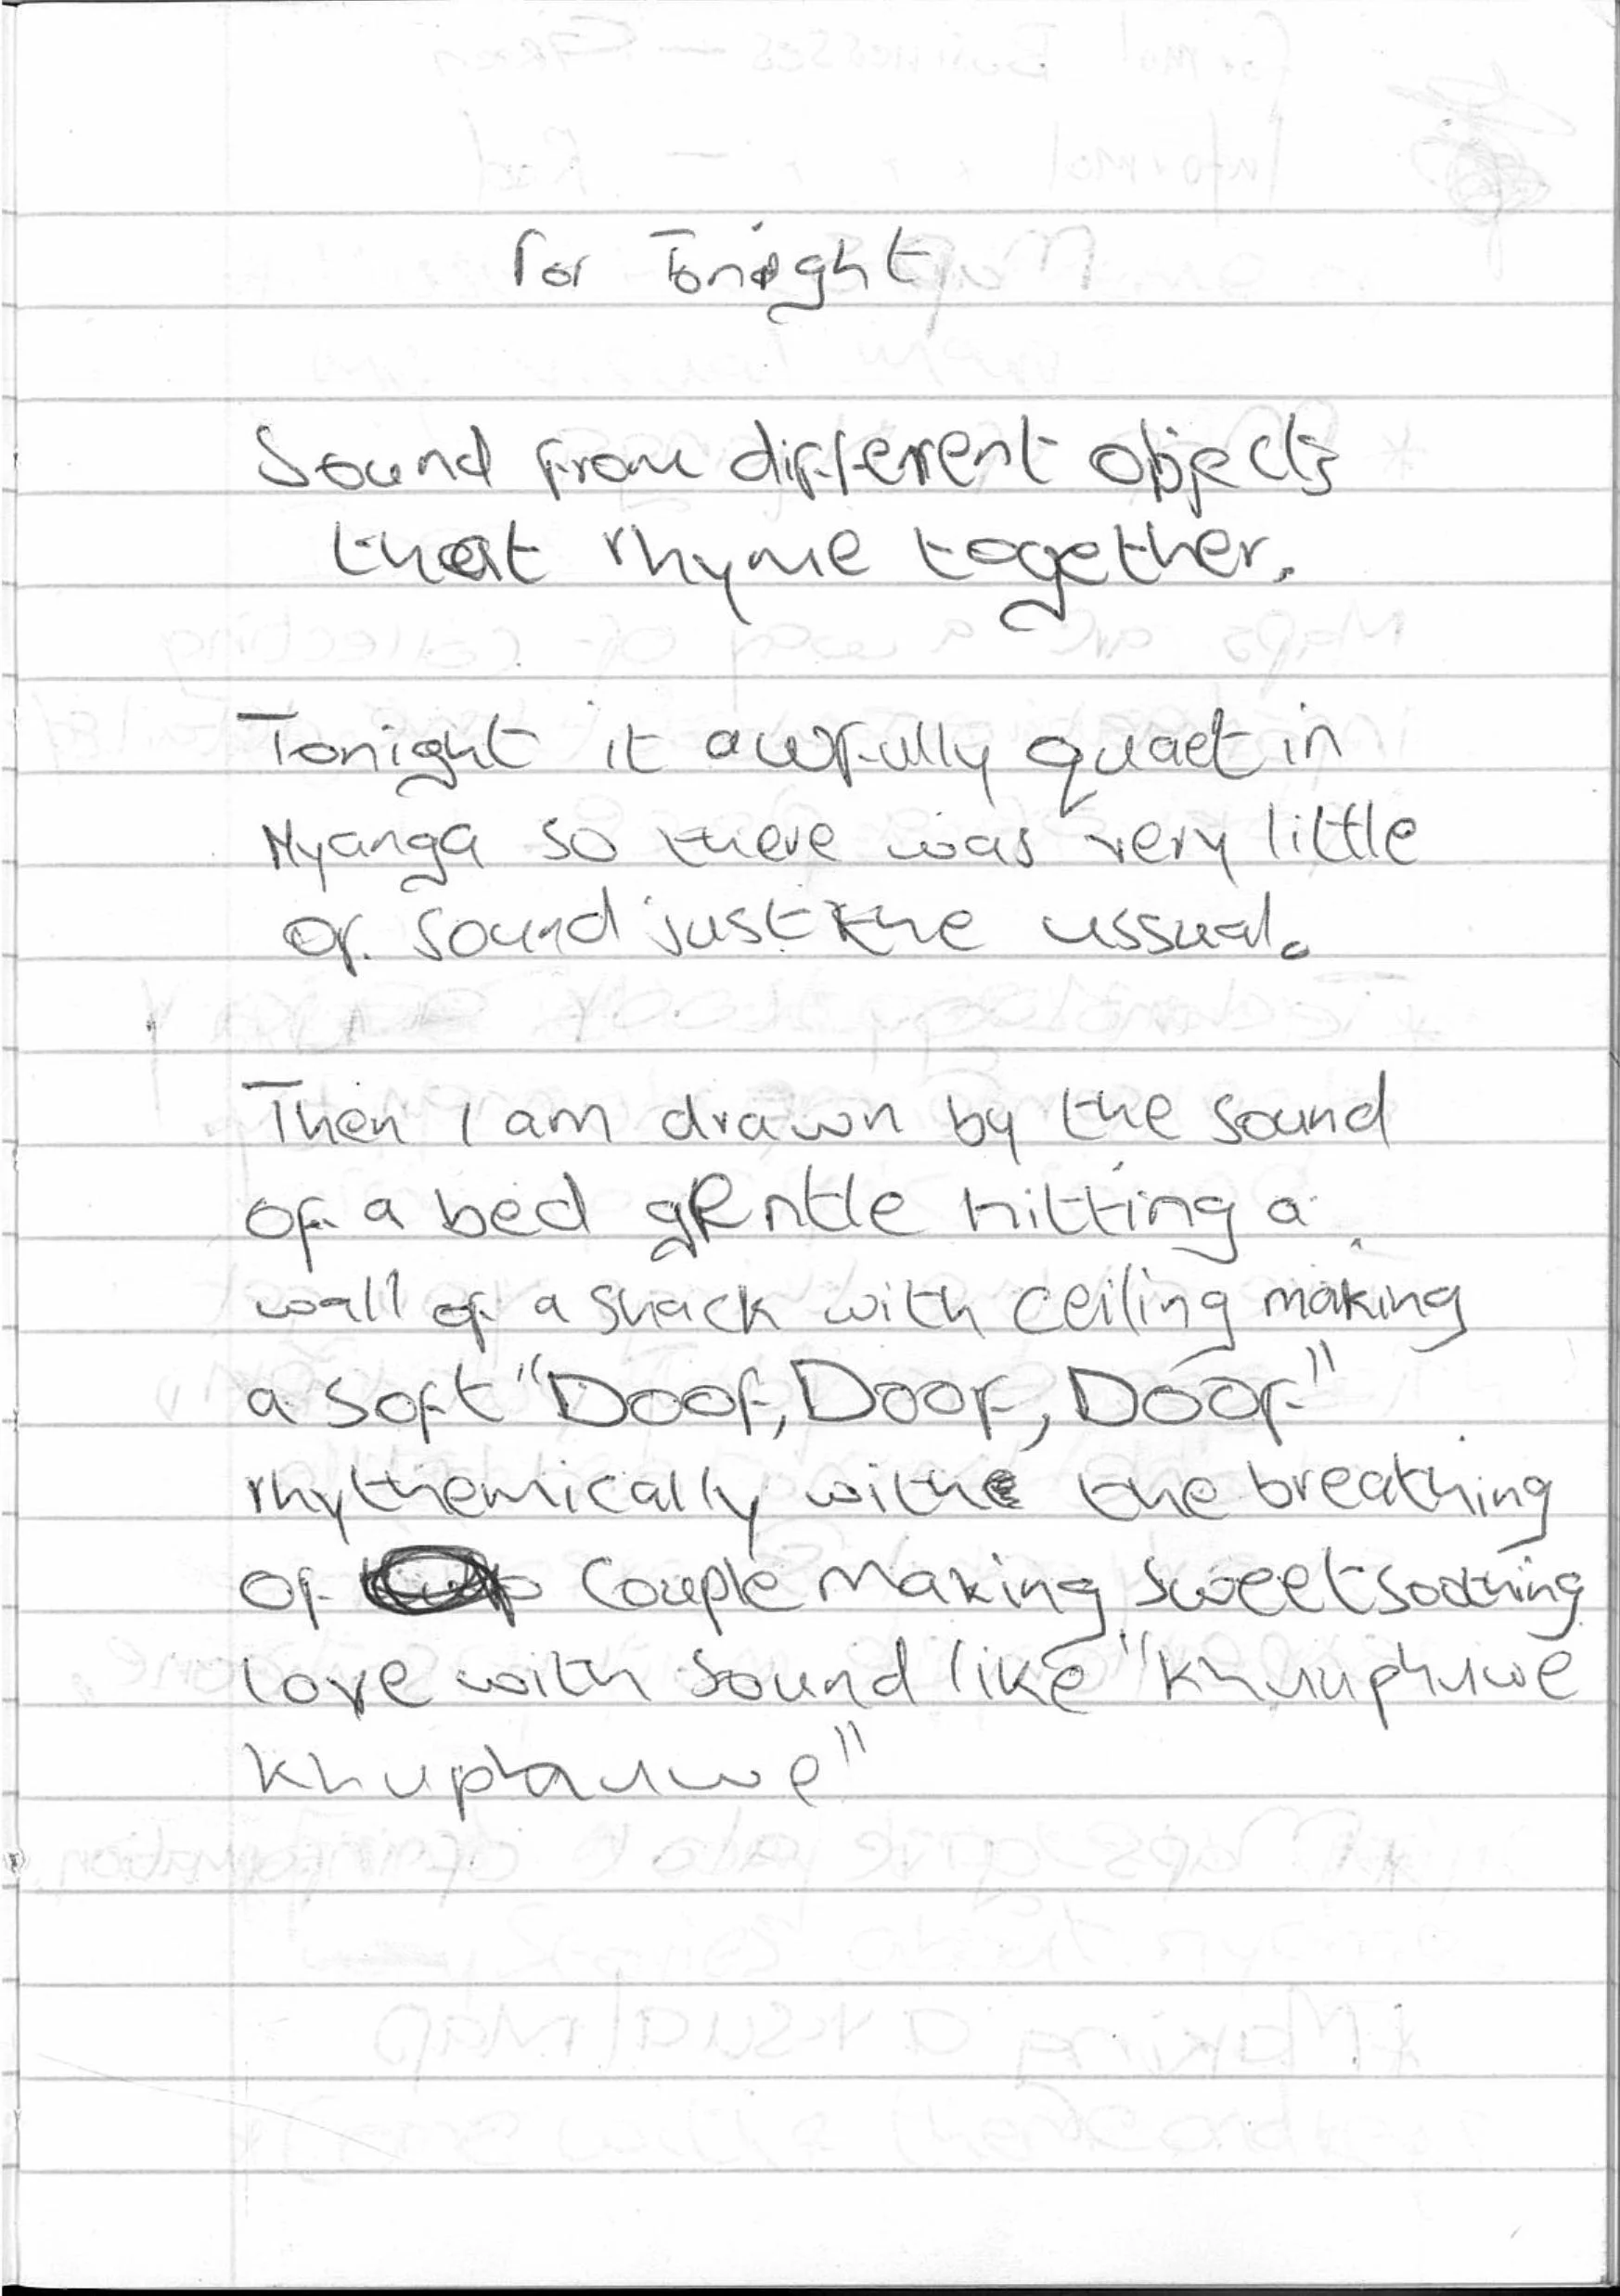 For Tonight
Sound from different objects
that rhyme together.
Tonight it awfully quaet in
Nyanga so there was very little
of sound just the ussual.
Then I am drawn by the sound
of a bed gentle hitting a
wall of a shack with ceiling making
a soft "Doof, Doof, Doof"
rhythemically with the breathing
of couple making sweet soothing
love with sound like "khuuphuwe
khuphuuwe"